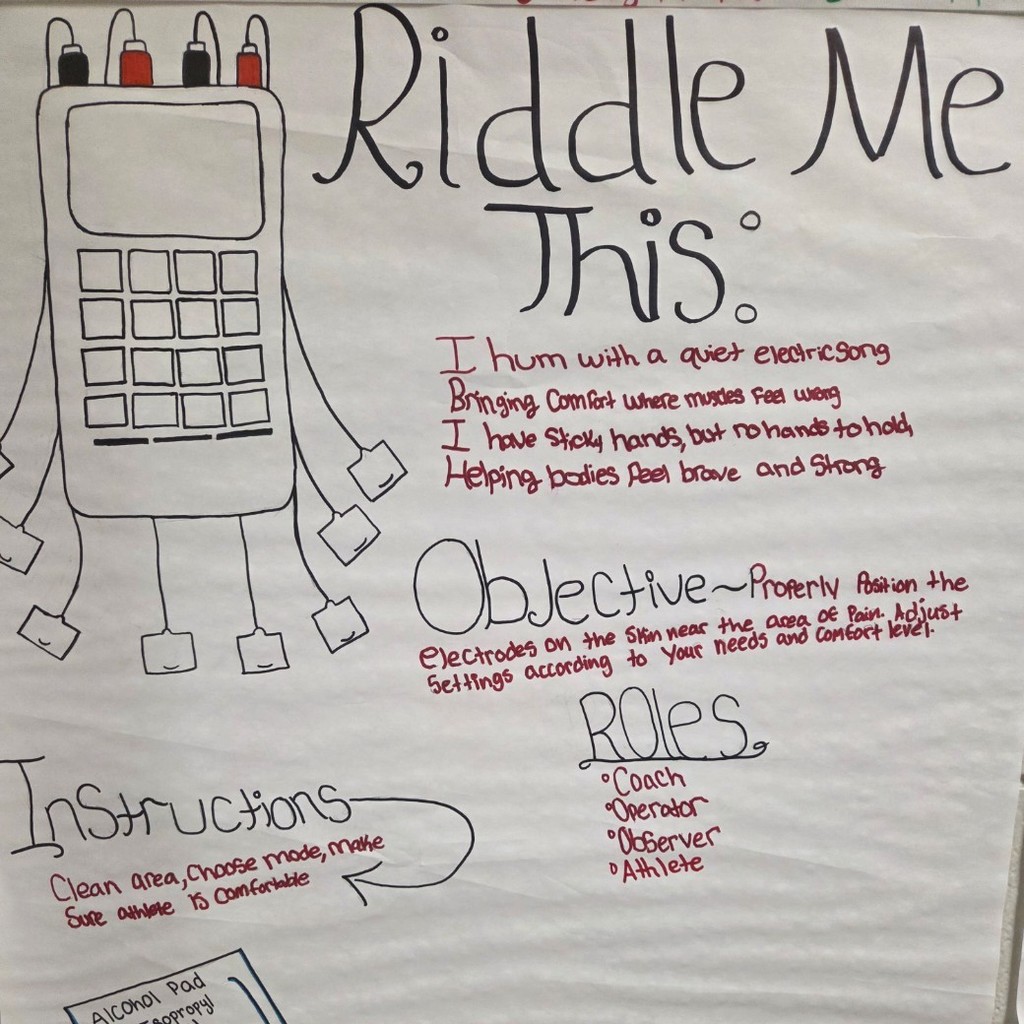 Riddle Me
This:
I hum with a quiet electric song
Bringing Comfort where muscles feel wrong
I have sticky hands, but no hands to hold,
Helping bodies feel brave and strong
Objective~Properly Position the
electrodes on the skin near the area of Pain. Adjust
Settings according to your needs and comfort level.
Roles
°Coach
°Operator
°Observer
°Athlete
Instructions
Clean area, Choose mode, make
Sure athlete is comfortable
Alcohol Pad